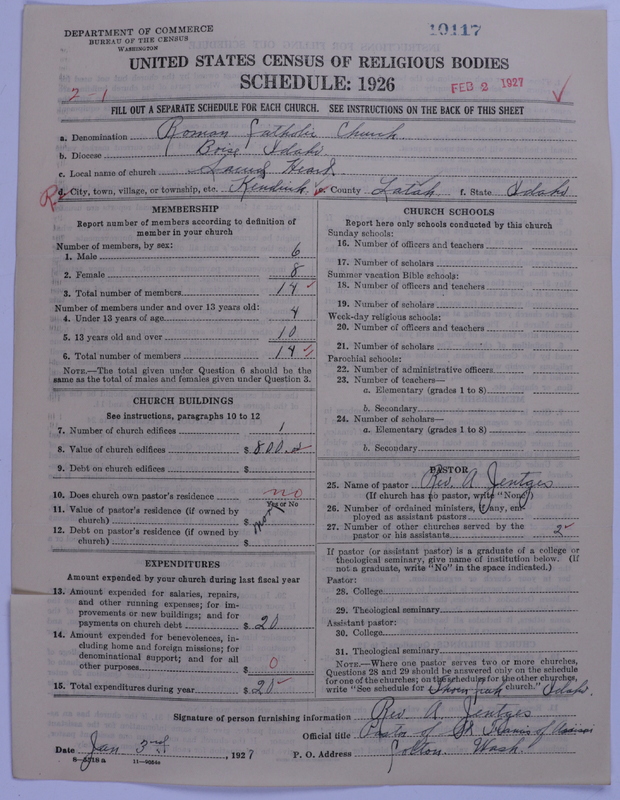 DEPARTMENT OF COMMERCE
BUREAU OF THE CENSUS
WASHINGTON
10117
UNITED STATES CENSUS OF RELIGIOUS BODIES
SCHEDULE: 1926
2-1
FEB 2 1927
FILL OUT A SEPARATE SCHEDULE FOR EACH CHURCH. SEE INSTRUCTIONS ON THE BACK OF THIS SHEET
a. Denomination Roman Catholic Church
b. Diocese Boise Idaho
c. Local name of church Sacred Heart
R d. City, town, village, or township, etc. Kendrick e. County Latah f. State Idaho
MEMBERSHIP
Report number of members according to definition of
member in your church
Number of members, by sex:
1. Male 6
2. Female 8
3. Total number of members 14
Number of members under and over 13 years old:
4. Under 13 years of age 4
5. 13 years old and over 10
6. Total number of members 14
NOTE.—The total given under Question 6 should be the
same as the total of males and females given under Question 3.
CHURCH BUILDINGS
See instructions, paragraphs 10 to 12
7. Number of church edifices 1
8. Value of church edifices $ 800.
9. Debt on church edifices $
10. Does church own pastor's residence no
Yes or No
11. Value of pastor's residence (if owned by
church) $
12. Debt on pastor's residence (if owned by
church) $
EXPENDITURES
Amount expended by your church during last fiscal year
13. Amount expended for salaries, repairs,
and other running expenses; for im-
provements or new buildings; and for
payments on church debt $ 20
14. Amount expended for benevolences, in-
cluding home and foreign missions; for
denominational support; and for all
other purposes $ 0
15. Total expenditures during year $ 20
CHURCH SCHOOLS
Report here only schools conducted by this church
Sunday schools:
16. Number of officers and teachers
17. Number of scholars
Summer vacation Bible schools:
18. Number of officers and teachers
19. Number of scholars
Week-day religious schools:
20. Number of officers and teachers
21. Number of scholars
Parochial schools:
22. Number of administrative officers
23. Number of teachers—
a. Elementary (grades 1 to 8)
b. Secondary
24. Number of scholars—
a. Elementary (grades 1 to 8)
b. Secondary
PASTOR
25. Name of pastor Rev. A. Jentges
(If church has no pastor, write "None")
26. Number of ordained ministers, if any, em-
ployed as assistant pastors
27. Number of other churches served by the
pastor or his assistants 2
If pastor (or assistant pastor) is a graduate of a college or
theological seminary, give name of institution below. (If
not a graduate, write "No" in the space indicated.)
Pastor:
28. College
29. Theological seminary
Assistant pastor:
30. College
31. Theological seminary
NOTE.—Where one pastor serves two or more churches,
Questions 28 and 29 should be answered only on the schedule
for one of the churches; on the schedule for the other churches,
write "See schedule for church." Idaho.
Signature of person furnishing information Rev A. Jentges
Official title Pastor of St Francis of Assisi
Date Jan 3rd, 1927 P. O. Address Colton Wash.
8-5518a 11-9664a